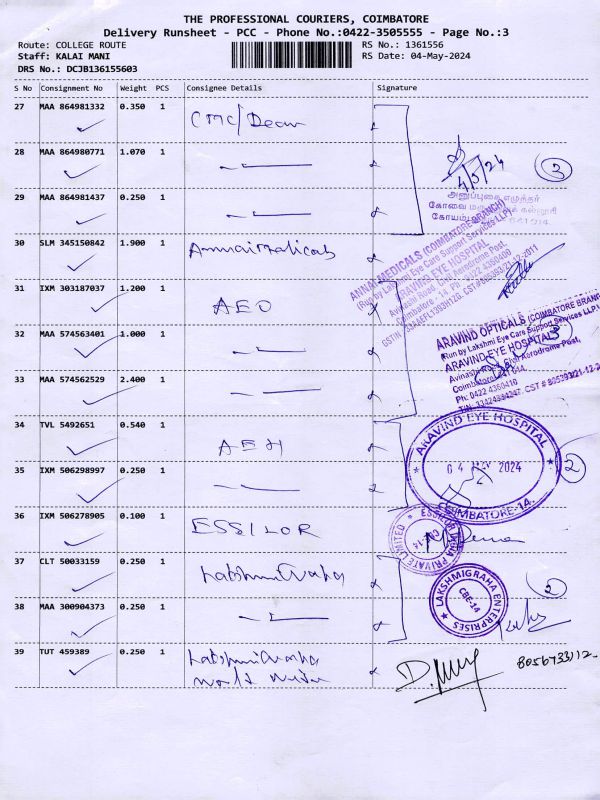 THE PROFESSIONAL COURIERS, COIMBATORE
Delivery Runsheet - PCC - Phone No.:0422-3505555 - Page No.:3
Route: COLLEGE ROUTE
RS No.: 1361556
Staff: KALAI MANI
RS Date: 04-May-2024
DRS No.: DCJB136155603
S No Consignment No Weight PCS Consignee Details Signature
27 MAA 864981332 0.350 1 CMC/Dean
28 MAA 864980771 1.070 1
4/5/24 3
29 MAA 864981437 0.250 1
அனுப்புகை எழுத்தர்
30 SLM 345150842 1.900 1
ANNAI MEDICALS (COIMBATORE BRANCH)
(Run by Lakshmi Eye Care Support Services LLP)
ARAVIND EYE HOSPITAL
Avinashi Road, Civil Aerodrome Post,
Coimbatore - 14
31 IXM 303187037 1.200 1 AEO
32 MAA 574563401 1.000 1
ARAVIND OPTICALS (COIMBATORE BRANCH
(Run by Lakshmi Eye Care Support Services LLP)
ARAVIND EYE HOSPITAL
Civil Aerodrome Post,
Ph: 0422 4360410
33 MAA 574562529 2.400 1
34 TVL 5492651 0.540 1 AEH
ARAVIND EYE HOSPITAL
MAY 2024
COIMBATORE-14.
2
35 IXM 506298997 0.250 1
36 IXM 506278905 0.100 1 ESSILOR
ESSILOR INDIA PRIVATE LIMITED
37 CLT 50033159 0.250 1
LAKSHMIGRAHA ENTERPRISES
CBE-14
2
38 MAA 300904373 0.250 1
39 TUT 459389 0.250 1
8056733112